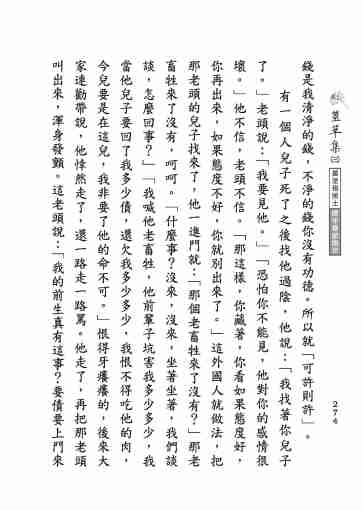 藍草集㈡
274
錢是我清淨的錢，不淨的錢你沒有功德。所以就「可許則許」。
有一個人兒子死了之後找他過陰，他說：「我找著你兒子
了。」老頭說：「我要見他。」「恐怕你不能見，他對你的感情很
壞。」他不信，老頭不信。「那這樣，你藏著，你看如果態度好，
你再出來，如果態度不好，你就別出來了。」這外國人就做法，把
那老頭的兒子找來了，他一進門就：「那個老畜牲來了沒有？」那老
畜牲來了沒有，呵呵。「什麼事？沒來，沒來，坐著坐著，我們談
談，怎麼回事？」「我喊他老畜牲，他前輩子坑害我多少多少，我
當他兒子要回了我多少債，還欠我多少多少，我恨不得吃他的肉，
今兒要是在這兒，我非要了他的命不可。」恨得牙癢癢的，後來大
家連勸帶說，他悻然走了，還一路走一路罵。他走了，再把那老頭
叫出來，渾身發顫。這老頭說：「我的前生真有這事？要債要上門來